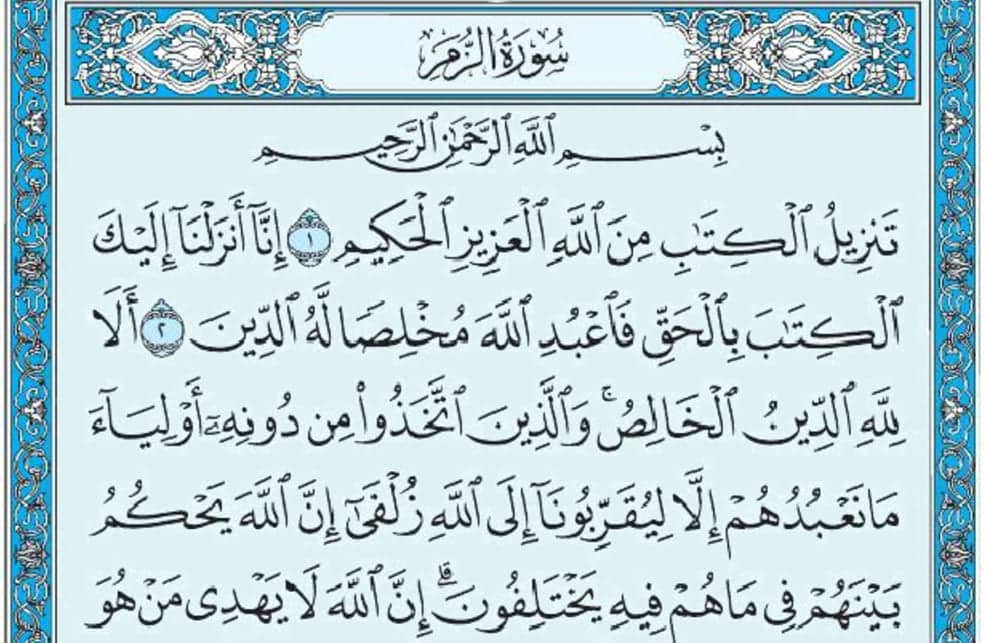 سُورَةُ الزُّمَرِ
بِسْمِ ٱللَّهِ ٱلرَّحْمَٰنِ ٱلرَّحِيمِ
تَنزِيلُ ٱلْكِتَٰبِ مِنَ ٱللَّهِ ٱلْعَزِيزِ ٱلْحَكِيمِ ١ إِنَّآ أَنزَلْنَآ إِلَيْكَ
ٱلْكِتَٰبَ بِٱلْحَقِّ فَٱعْبُدِ ٱللَّهَ مُخْلِصًا لَّهُ ٱلدِّينَ ٢ أَلَا
لِلَّهِ ٱلدِّينُ ٱلْخَالِصُ ۚ وَٱلَّذِينَ ٱتَّخَذُوا۟ مِن دُونِهِۦٓ أَوْلِيَآءَ
مَا نَعْبُدُهُمْ إِلَّا لِيُقَرِّبُونَآ إِلَى ٱللَّهِ زُلْفَىٰٓ إِنَّ ٱللَّهَ يَحْكُمُ
بَيْنَهُمْ فِى مَا هُمْ فِيهِ يَخْتَلِفُونَ ۗ إِنَّ ٱللَّهَ لَا يَهْدِى مَنْ هُوَ